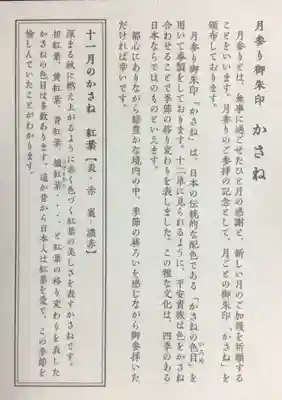 月参り御朱印 かさね
月参りとは、無事に過ごせたひと月の感謝と、新しい月のご加護を祈願する
ことをいいます。月参りのご参拝の記念として、月ごとの御朱印「かさね」を
頒布しております。
月参り御朱印「かさね」は、日本の伝統的な配色である「かさねの色目」を
いろめ
用いて奉製をしております。十二単に見られるように、平安貴族は色をかさね
合わせることで季節の移り変わりを表しました。この雅な文化は、四季のある
日本ならではのものといえます。
都心にありながら緑豊かな境内の中、季節の移ろいを感じながら御参拝いた
だければ幸いです。
十一月のかさね 紅葉【表・赤 裏・濃赤】
深まる秋に燃え上がるように赤く色づく紅葉の美しさを表すかさねです。
初紅葉、黄紅葉、青紅葉、樨紅葉・・・と紅葉の移り変わりを表した
かさねの色目は多数あります。遥か昔から日本人は紅葉を愛で、この季節を
愉しんでいたことがわかります。